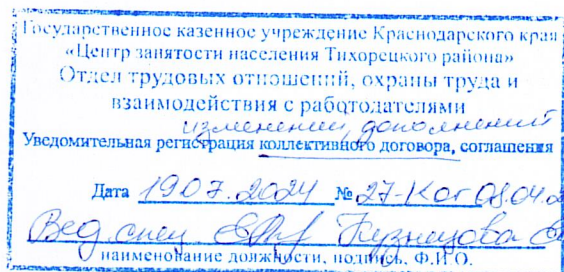 Государственное казенное учреждение Краснодарского края
«Центр занятости населения Тихорецкого района»
Отдел трудовых отношений, охраны труда и
взаимодействия с работодателями
изменений, дополнений
Уведомительная регистрация коллективного договора, соглашения
Дата 19.07.2024 № 27-К от 08.04.2
Вед. спец. Кузнецова Е
наименование должности, подпись, Ф.И.О.